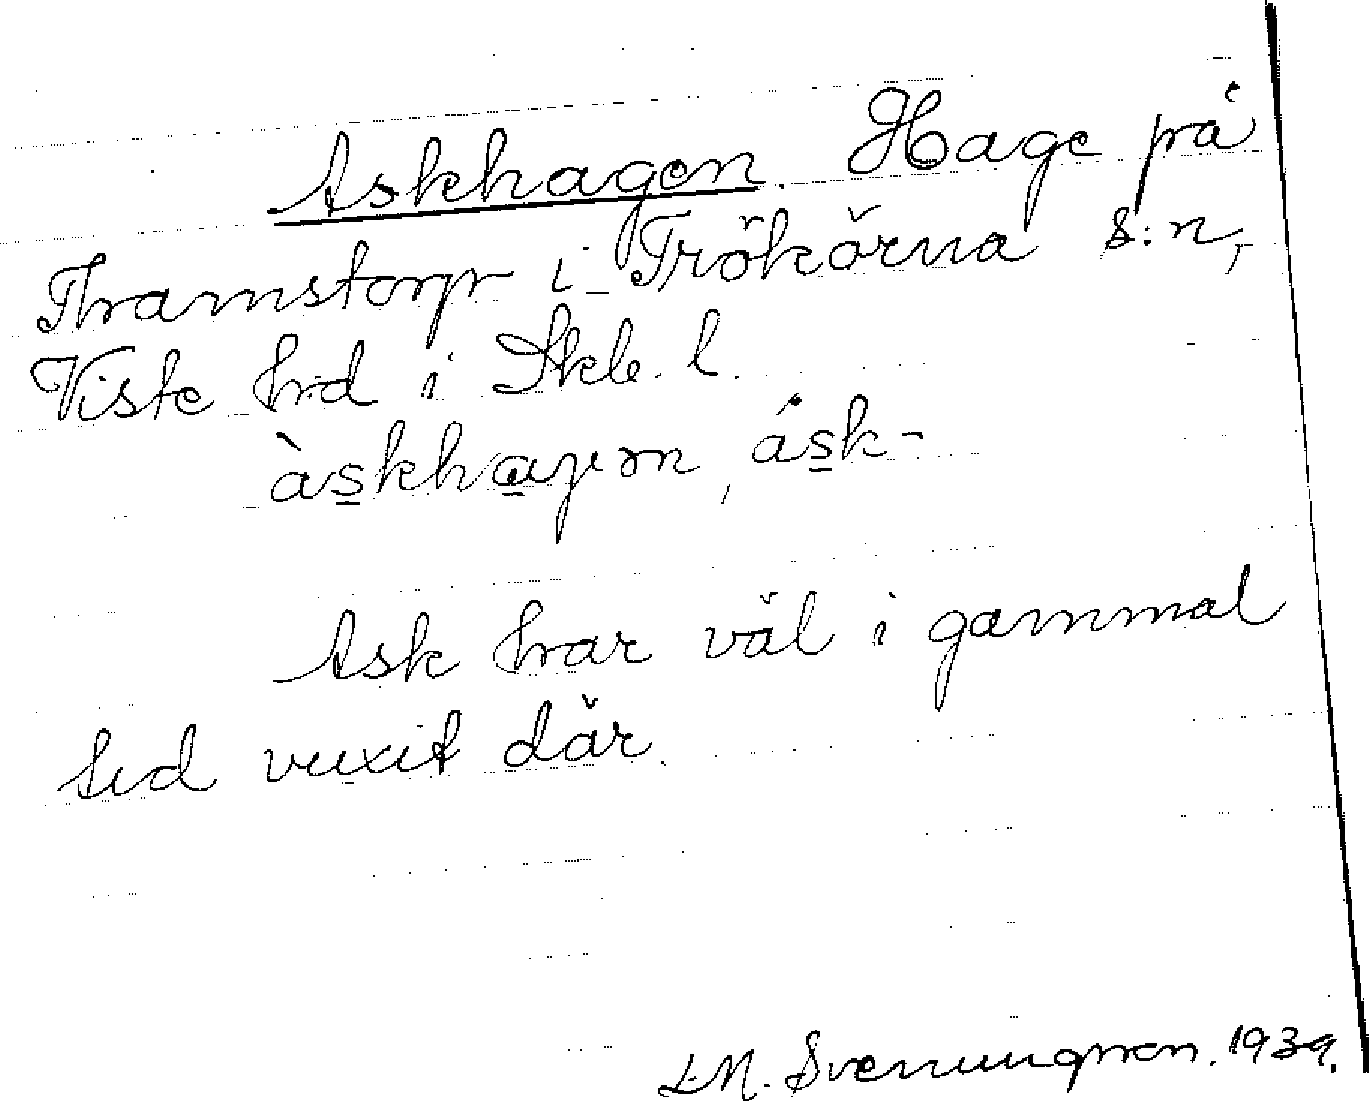 Askhagen. Hage på
Thamstorp i Trökörna s:n,
Viste hd i Skb. l.
àskhagən, ásk-
Ask har väl i gammal
tid vuxit där.
L.M. Svenungsson. 1939.